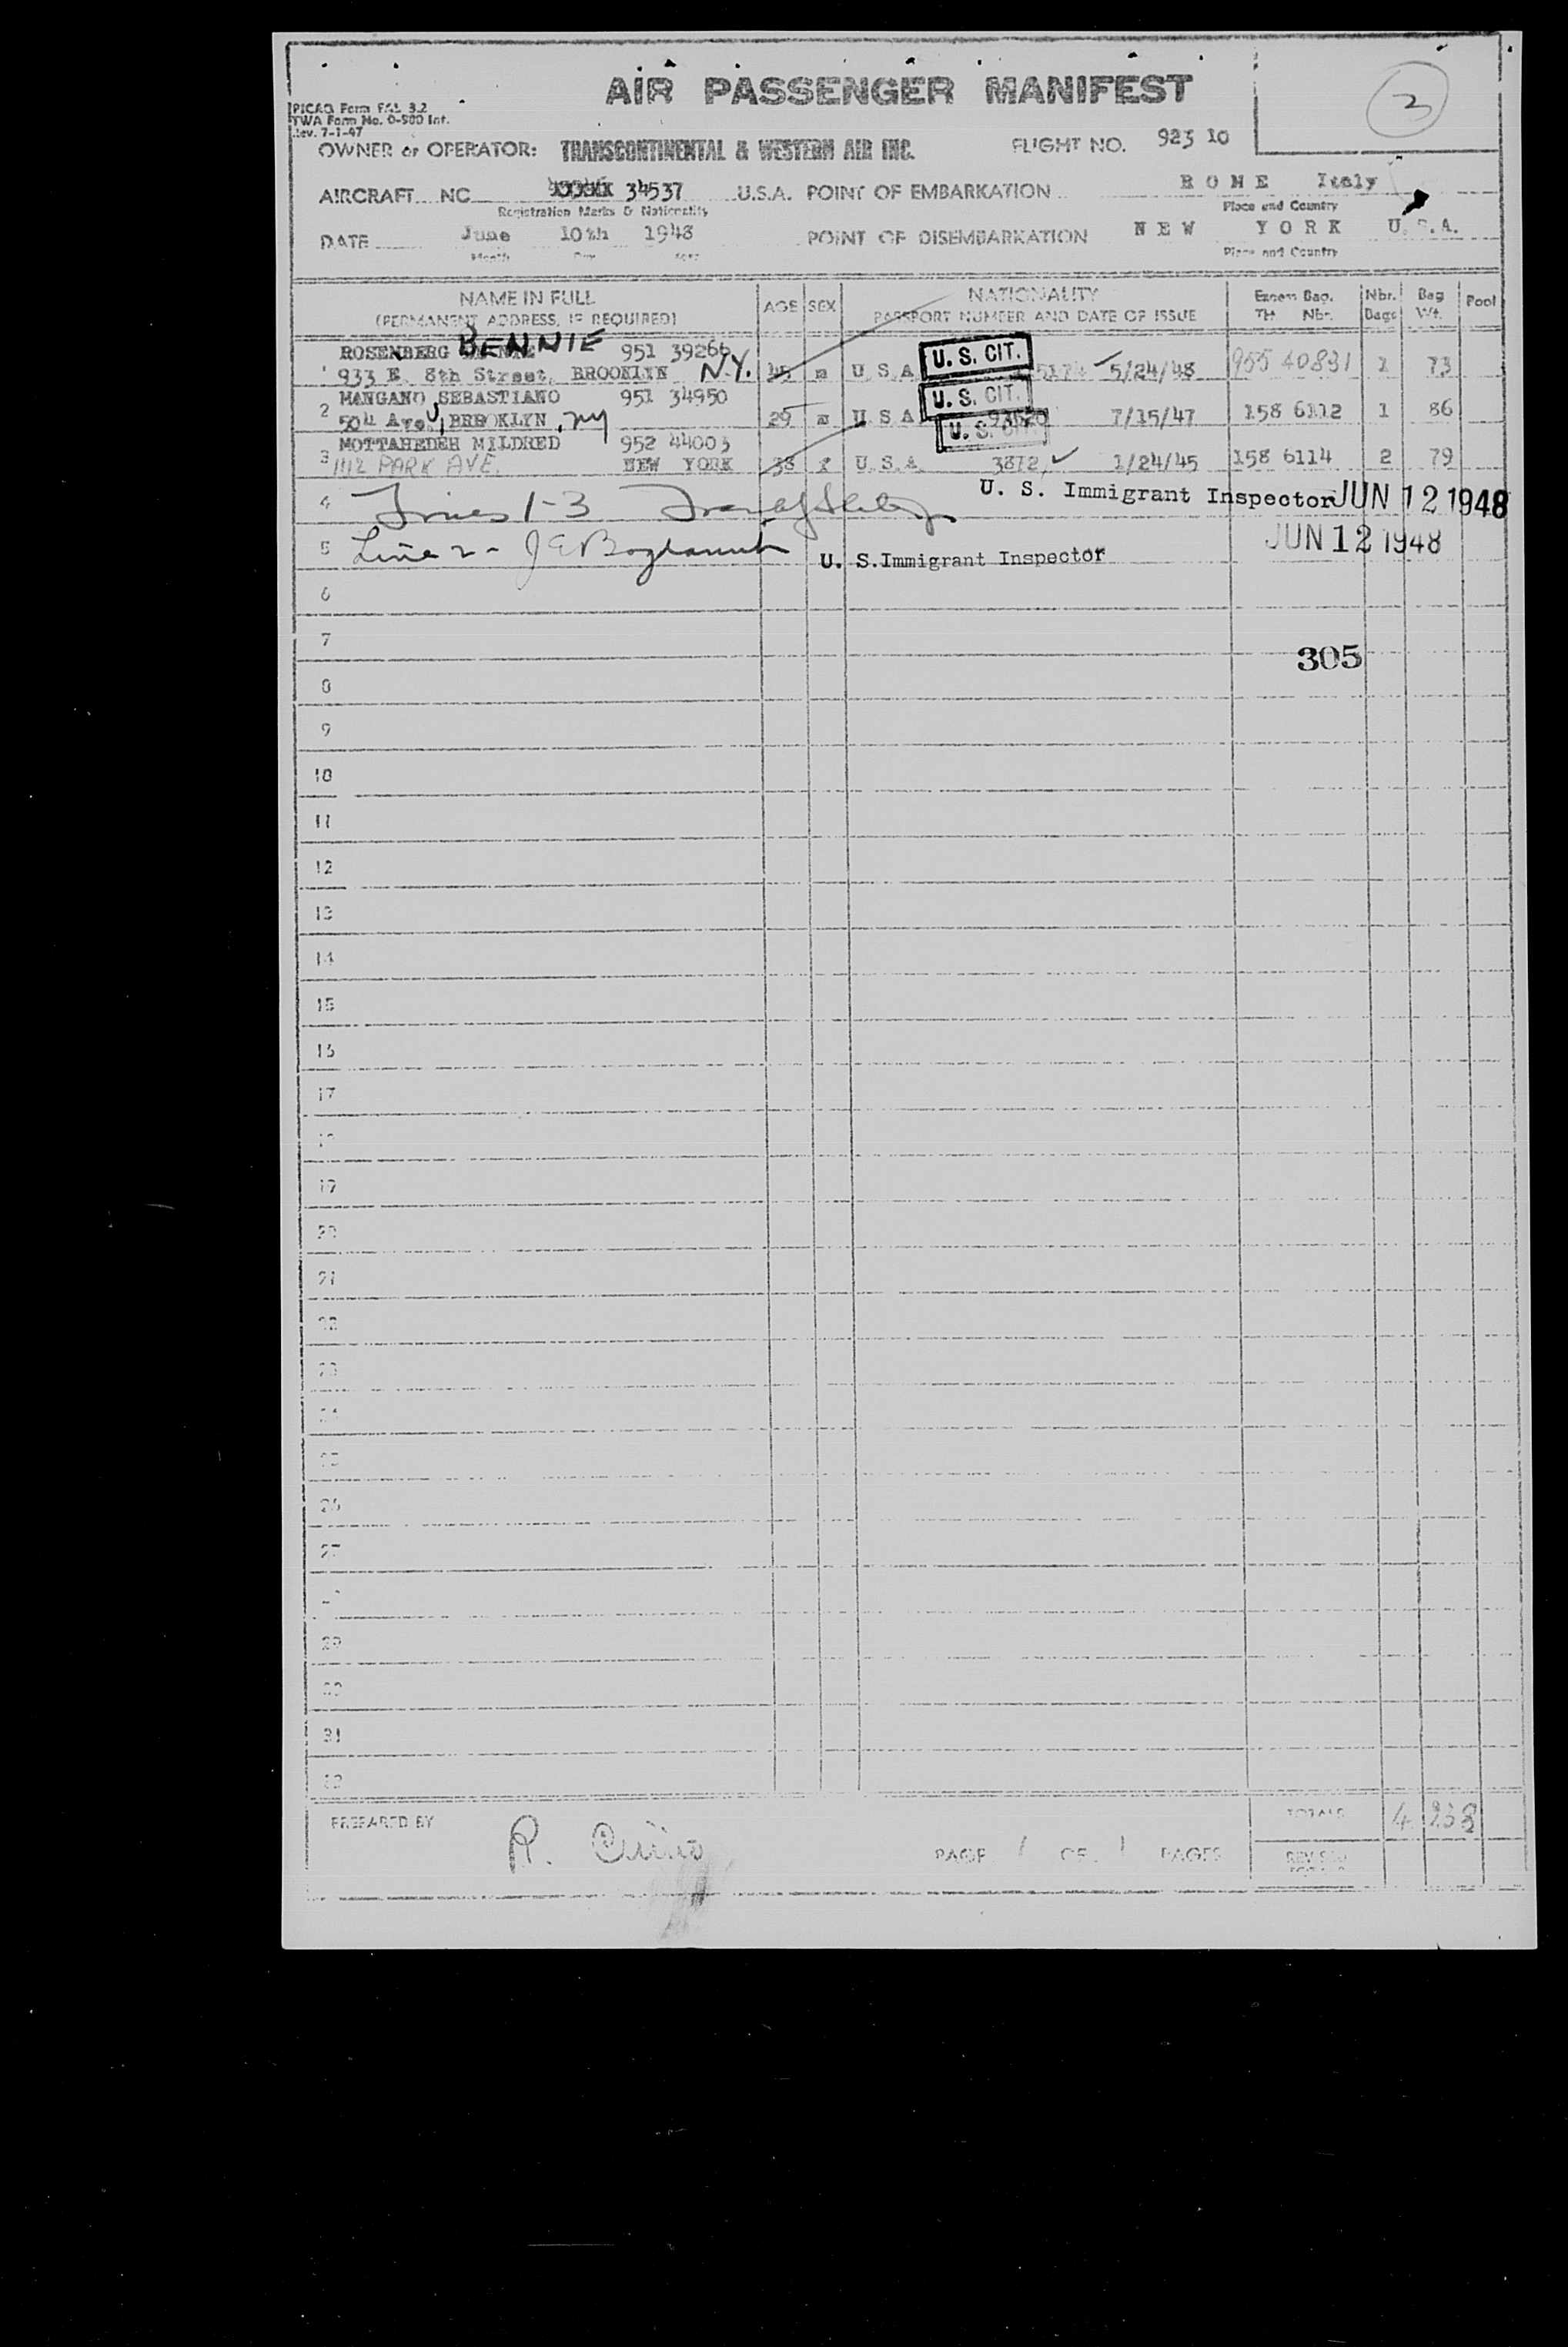 AIR PASSENGER MANIFEST
3
PICAO Form FAL 3.2
TWA Form No. O-500 Int.
Rev. 7-1-47
OWNER or OPERATOR: TRANSCONTINENTAL & WESTERN AIR INC. FLIGHT NO. 923 10
AIRCRAFT NC 34537 U.S.A. POINT OF EMBARKATION ROME Italy
Registration Marks & Nationality Place and Country
DATE June 10th 1948 POINT OF DISEMBARKATION NEW YORK U.S.A.
Month Day Year Place and Country
NAME IN FULL AGE SEX NATIONALITY Excess Bag. Nbr. Bag Pool
(PERMANENT ADDRESS, IF REQUIRED) PASSPORT NUMBER AND DATE OF ISSUE TH Nbr. Bags Wt.
ROSENBERG BENNIE 951 39266 U. S. CIT.
1 933 E. 8th Street, BROOKLYN N.Y. 45 m U S A 5/24/48 955 40831 1 73
MANGANO SEBASTIANO 951 34950 U. S. CIT.
2 504 Ave U, BROOKLYN, NY 29 m U S A 7/15/47 158 6112 1 86
MOTTAHEDEH MILDRED 952 44003 U. S. CIT.
3 1112 PARK AVE. NEW YORK 38 f U.S.A. 3872 1/24/45 158 6114 2 79
4 Lines 1-3 U. S. Immigrant Inspector JUN 12 1948
5 Line 2 - U. S. Immigrant Inspector JUN 12 1948
6
7
305
8
9
10
11
12
13
14
15
16
17
18
19
20
21
22
23
24
25
26
27
28
29
30
31
32
PREPARED BY R. PAGE 1 OF 1 PAGES TOTALS 4 238